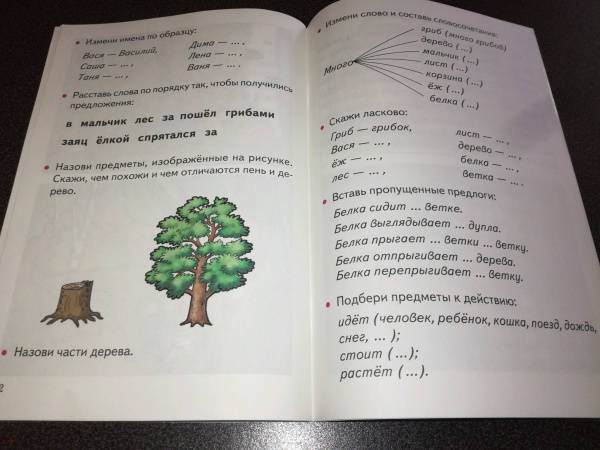 • Измени имена по образцу:
Вася — Василий, Дима — ... ,
Саша — ... , Лена — ... ,
Таня — ... , Ваня — ... .
• Расставь слова по порядку так, чтобы получились
предложения:
в мальчик лес за пошёл грибами
заяц ёлкой спрятался за
• Назови предметы, изображённые на рисунке.
Скажи, чем похожи и чем отличаются пень и де-
рево.
• Назови части дерева.
2
• Измени слово и составь словосочетания:
Много
гриб (много грибов)
дерево (...)
мальчик (...)
лист (...)
корзина (...)
ёж (...)
белка (...)
• Скажи ласково:
Гриб — грибок, лист — ... ,
Вася — ... , дерево — ... ,
ёж — ... , белка — ... ,
лес — ... , ветка — ... .
• Вставь пропущенные предлоги:
Белка сидит ... ветке.
Белка выглядывает ... дупла.
Белка прыгает ... ветки ... ветку.
Белка отпрыгивает ... дерева.
Белка перепрыгивает ... ветку.
• Подбери предметы к действию:
идёт (человек, ребёнок, кошка, поезд, дождь,
снег, ... );
стоит (...);
растёт (...).